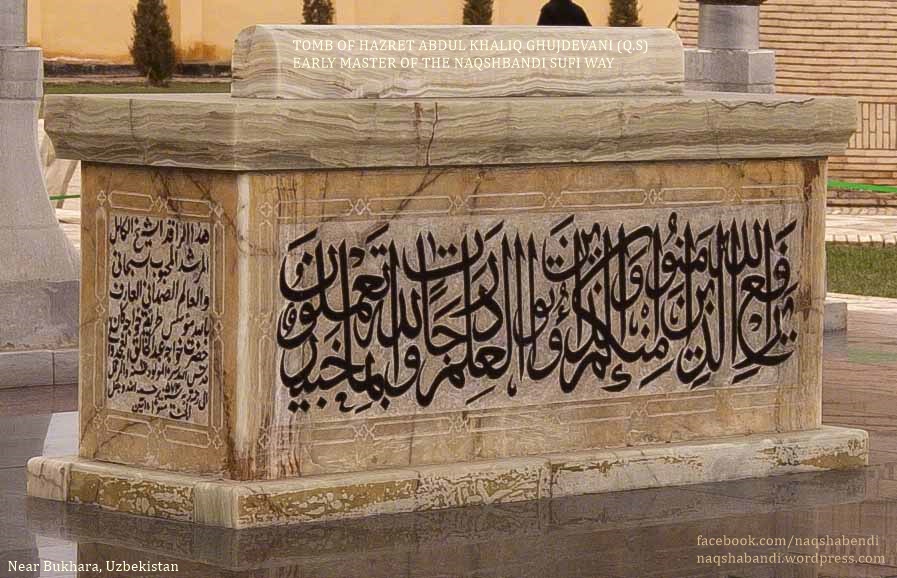 TOMB OF HAZRET ABDUL KHALIQ GHUJDEVANI (Q.S)
EARLY MASTER OF THE NAQSHBANDI SUFI WAY
يرفع الله الذين امنوا منكم والذين اوتوا العلم درجات والله بما تعملون خبير
هذا الراقد الشيخ الكامل
المرشد
والعالم الصمداني العارف
بالله مؤسس طريقة خواجگان
حضرت خواجه عبدالخالق
Near Bukhara, Uzbekistan
facebook.com/naqshabendi
naqshabandi.wordpress.com